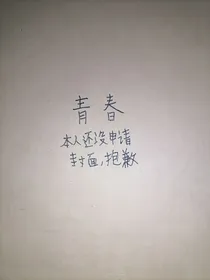 青春
本人还没申请
封面,抱歉